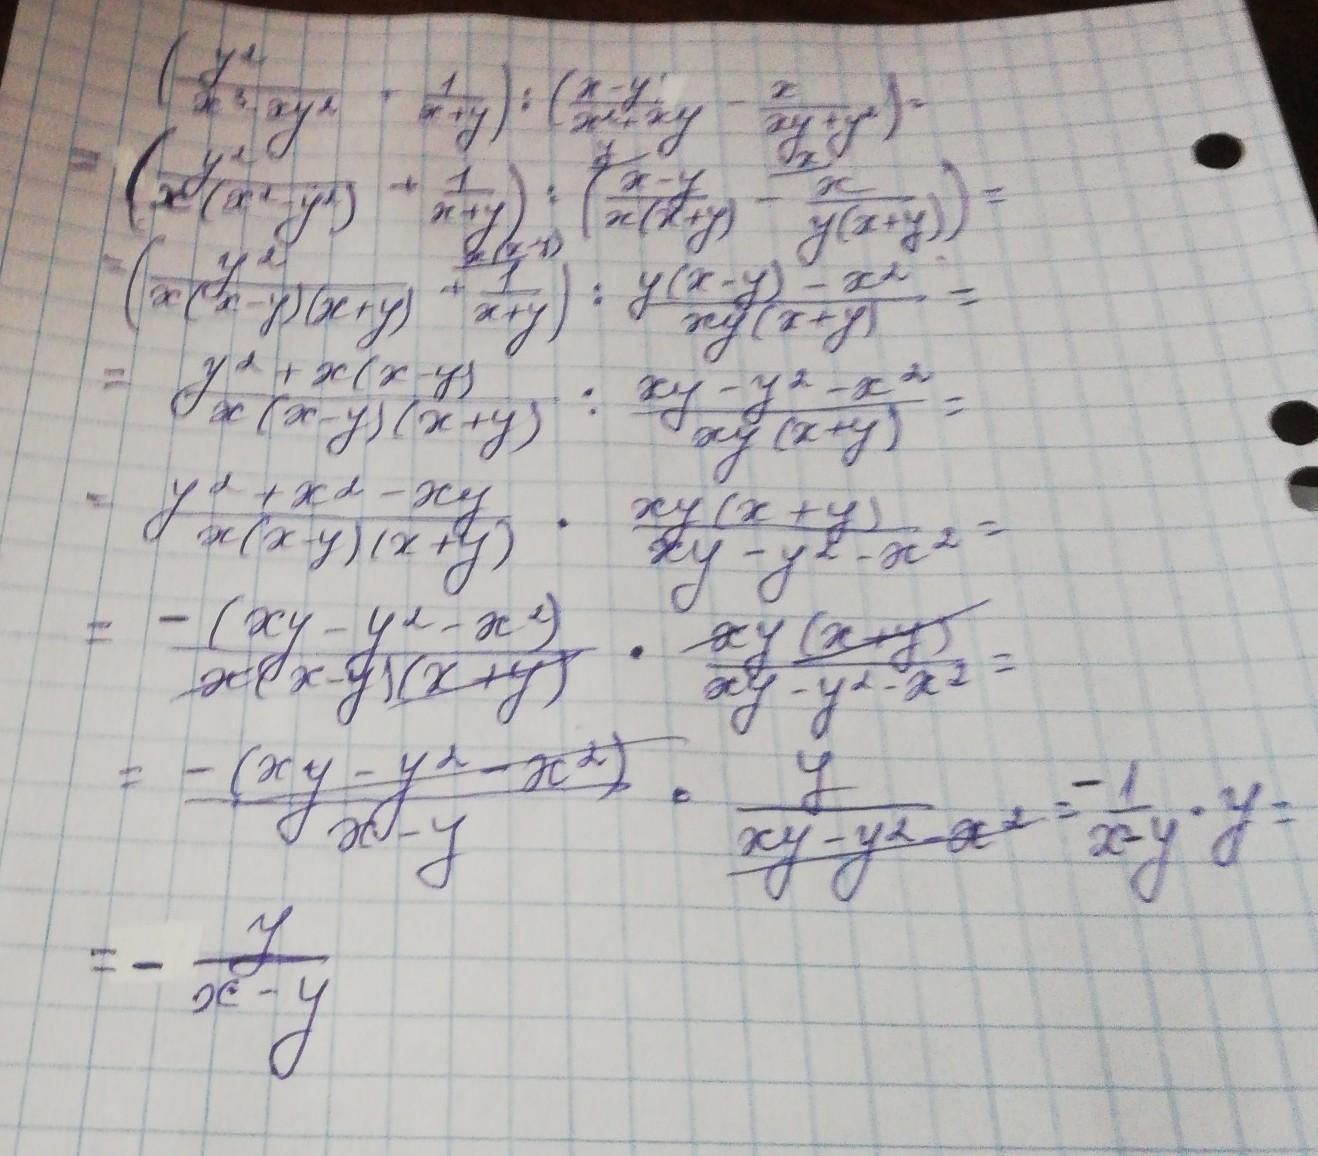 (y²/(x³ - xy²) + 1/(x+y)) : ((x-y)/(x²+xy) - x/(xy+y²)) =
= (y²/(x(x²-y²)) + 1/(x+y)) : ((x-y)/(x(x+y)) - x/(y(x+y))) =
= (y²/(x(x-y)(x+y)) + 1/(x+y)) : (y(x-y) - x²)/(xy(x+y)) =
= (y² + x(x-y))/(x(x-y)(x+y)) : (xy - y² - x²)/(xy(x+y)) =
= (y² + x² - xy)/(x(x-y)(x+y)) · (xy(x+y))/(xy - y² - x²) =
= -(xy - y² - x²)/(x(x-y)(x+y)) · (xy(x+y))/(xy - y² - x²) =
= -(xy - y² - x²)/(x-y) · y/(xy - y² - x²) = -1/(x-y) · y =
= - y/(x-y)